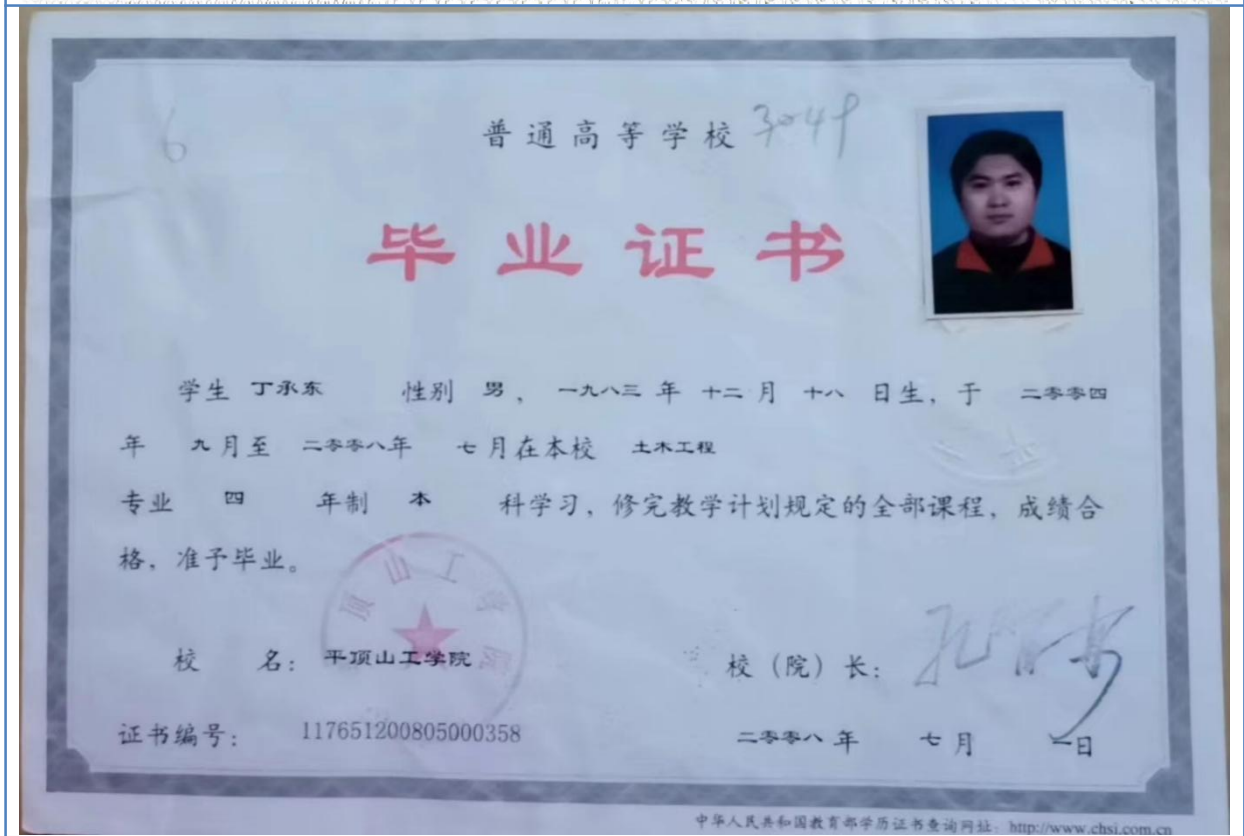 6
普通高等学校 3049
毕业证书
学生 丁承东 性别 男，一九八三 年 十二 月 十八 日生，于 二零零四
年 九月至 二零零八年 七月在本校 土木工程
专业 四 年制 本 科学习，修完教学计划规定的全部课程，成绩合
格，准予毕业。
顶山工学院
校 名：平顶山工学院 校（院）长：
证书编号：117651200805000358 二零零八 年 七月 一日
中华人民共和国教育部学历证书查询网址：http://www.chsi.com.cn